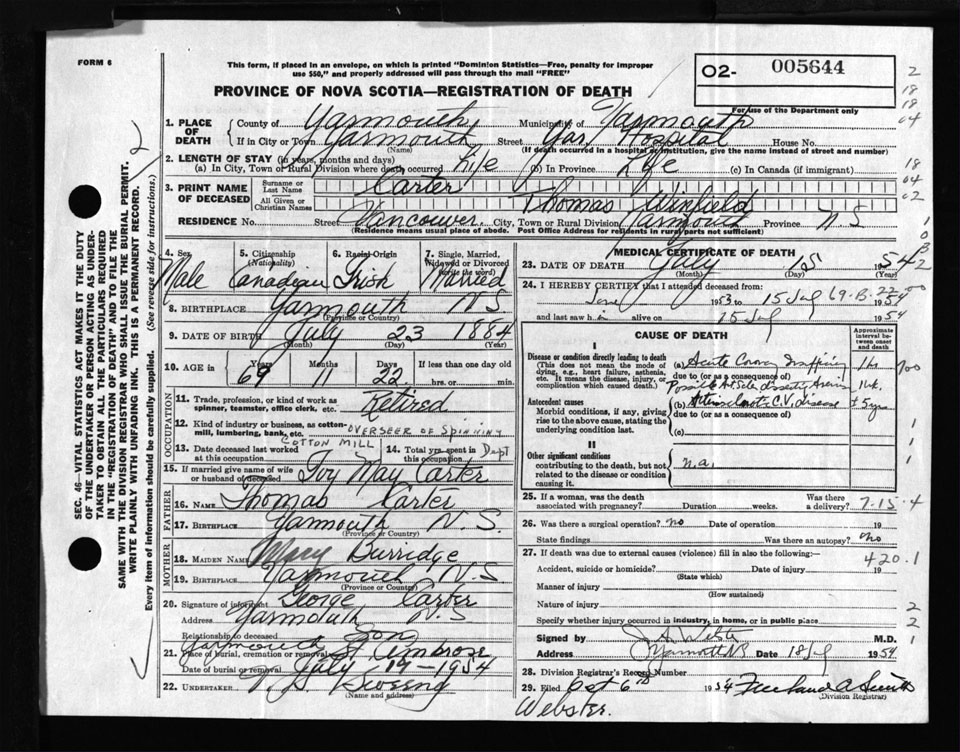 FORM 6
This form, if placed in an envelope, on which is printed "Dominion Statistics—Free, penalty for improper
use $50," and properly addressed will pass through the mail "FREE"
PROVINCE OF NOVA SCOTIA—REGISTRATION OF DEATH
O2- 005644
For use of the Department only
2
18
18
04
18
04
02
1. PLACE OF DEATH County of Yarmouth Municipality of Yarmouth
If in City or Town Yarmouth Street Yar Hospital House No.
(Name) (If death occurred in a hospital or institution, give the name instead of street and number)
2. LENGTH OF STAY (in years, months and days)
(a) In City, Town or Rural Division where death occurred Life (b) In Province Life (c) In Canada (if immigrant)
3. PRINT NAME OF DECEASED Surname or Last Name Carter
All Given or Christian Names Thomas Winfield
RESIDENCE No. Street Vancouver City, Town or Rural Division Yarmouth Province N S
(Residence means usual place of abode. Post Office Address for residents in rural parts not sufficient)
4. Sex Male
5. Citizenship (Nationality) Canadian
6. Racial Origin Irish
7. Single, Married, Widowed or Divorced (write the word) Married
8. BIRTHPLACE Yarmouth N S
(Province or Country)
9. DATE OF BIRTH July 23 1884
(Month) (Day) (Year)
10. AGE in Years 69 Months 11 Days 22 If less than one day old
hrs. or min.
OCCUPATION
11. Trade, profession, or kind of work as spinner, teamster, office clerk, etc. Retired
12. Kind of industry or business, as cotton-mill, lumbering, bank, etc. OVERSEER OF SPINNING
COTTON MILL Dept
13. Date deceased last worked at this occupation 14. Total yrs. spent in this occupation
15. If married give name of wife or husband of deceased Ivy May Carter
FATHER
16. NAME Thomas Carter
17. BIRTHPLACE Yarmouth N.S.
(Province or Country)
MOTHER
18. MAIDEN NAME Mary Durridge
19. BIRTHPLACE Yarmouth N.S
(Province or Country)
20. Signature of informant George Carter
Address Yarmouth N.S
Relationship to deceased Son
21. Place of burial, cremation or removal Yarmouth St Ambrose
Date of burial or removal July 17-1954
22. UNDERTAKER
(Name and address)
MEDICAL CERTIFICATE OF DEATH
23. DATE OF DEATH July 15 1954
(Month) (Day) (Year)
24. I HEREBY CERTIFY that I attended deceased from:
1953 to 15 July 1954
and last saw h im alive on 15 July 1954
CAUSE OF DEATH
Approximate interval between onset and death
I
Disease or condition directly leading to death
(This does not mean the mode of dying, e.g., heart failure, asthenia, etc. It means the disease, injury, or complication which caused death.)
(a) Acute Coron Insufficiency 1 hr
due to (or as a consequence of)
Antecedent causes
Morbid conditions, if any, giving rise to the above cause, stating the underlying condition last.
(b) C.V. disease ± 5 yrs
due to (or as a consequence of)
(c)
II
Other significant conditions
contributing to the death, but not related to the disease or condition causing it.
n.a.
25. If a woman, was the death associated with pregnancy? Duration weeks. Was there a delivery?
7-15-4
26. Was there a surgical operation? no Date of operation 19
State findings Was there an autopsy? no
27. If death was due to external causes (violence) fill in also the following:—
420.1
Accident, suicide or homicide? Date of injury 19
(State which)
Manner of injury
(How sustained)
Nature of injury
Specify whether injury occurred in industry, in home, or in public place
Signed by J A Webster M.D.
Address Yarmouth NS Date 18 July 1954
28. Division Registrar's Record Number
29. Filed Oct 6th 1954
(Division Registrar)
Webster.
SEC. 46—VITAL STATISTICS ACT MAKES IT THE DUTY
OF THE UNDERTAKER OR PERSON ACTING AS UNDER-
TAKER TO OBTAIN ALL THE PARTICULARS REQUIRED
IN THE "REGISTRATION OF DEATH" AND TO FILE THE
SAME WITH THE DIVISION REGISTRAR WHO SHALL ISSUE THE BURIAL PERMIT.
WRITE PLAINLY WITH UNFADING INK. THIS IS A PERMANENT RECORD.
Every item of information should be carefully supplied. (See reverse side for instructions.)